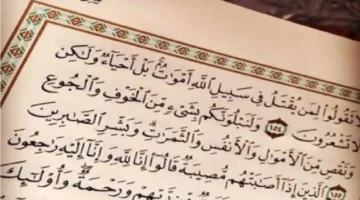 لَا تَقُولُوا۟ لِمَن يُقْتَلُ فِى سَبِيلِ ٱللَّهِ أَمْوَٰتٌۢ ۚ بَلْ أَحْيَآءٌ وَلَٰكِن
لَّا تَشْعُرُونَ ١٥٤ وَلَنَبْلُوَنَّكُم بِشَىْءٍ مِّنَ ٱلْخَوْفِ وَٱلْجُوعِ
وَنَقْصٍ مِّنَ ٱلْأَمْوَٰلِ وَٱلْأَنفُسِ وَٱلثَّمَرَٰتِ ۗ وَبَشِّرِ ٱلصَّٰبِرِينَ
١٥٥ ٱلَّذِينَ إِذَآ أَصَٰبَتْهُم مُّصِيبَةٌ قَالُوٓا۟ إِنَّا لِلَّهِ وَإِنَّآ إِلَيْهِ رَٰجِعُونَ
رَّبِّهِمْ وَرَحْمَةٌ ۖ وَأُو۟لَٰٓئِكَ